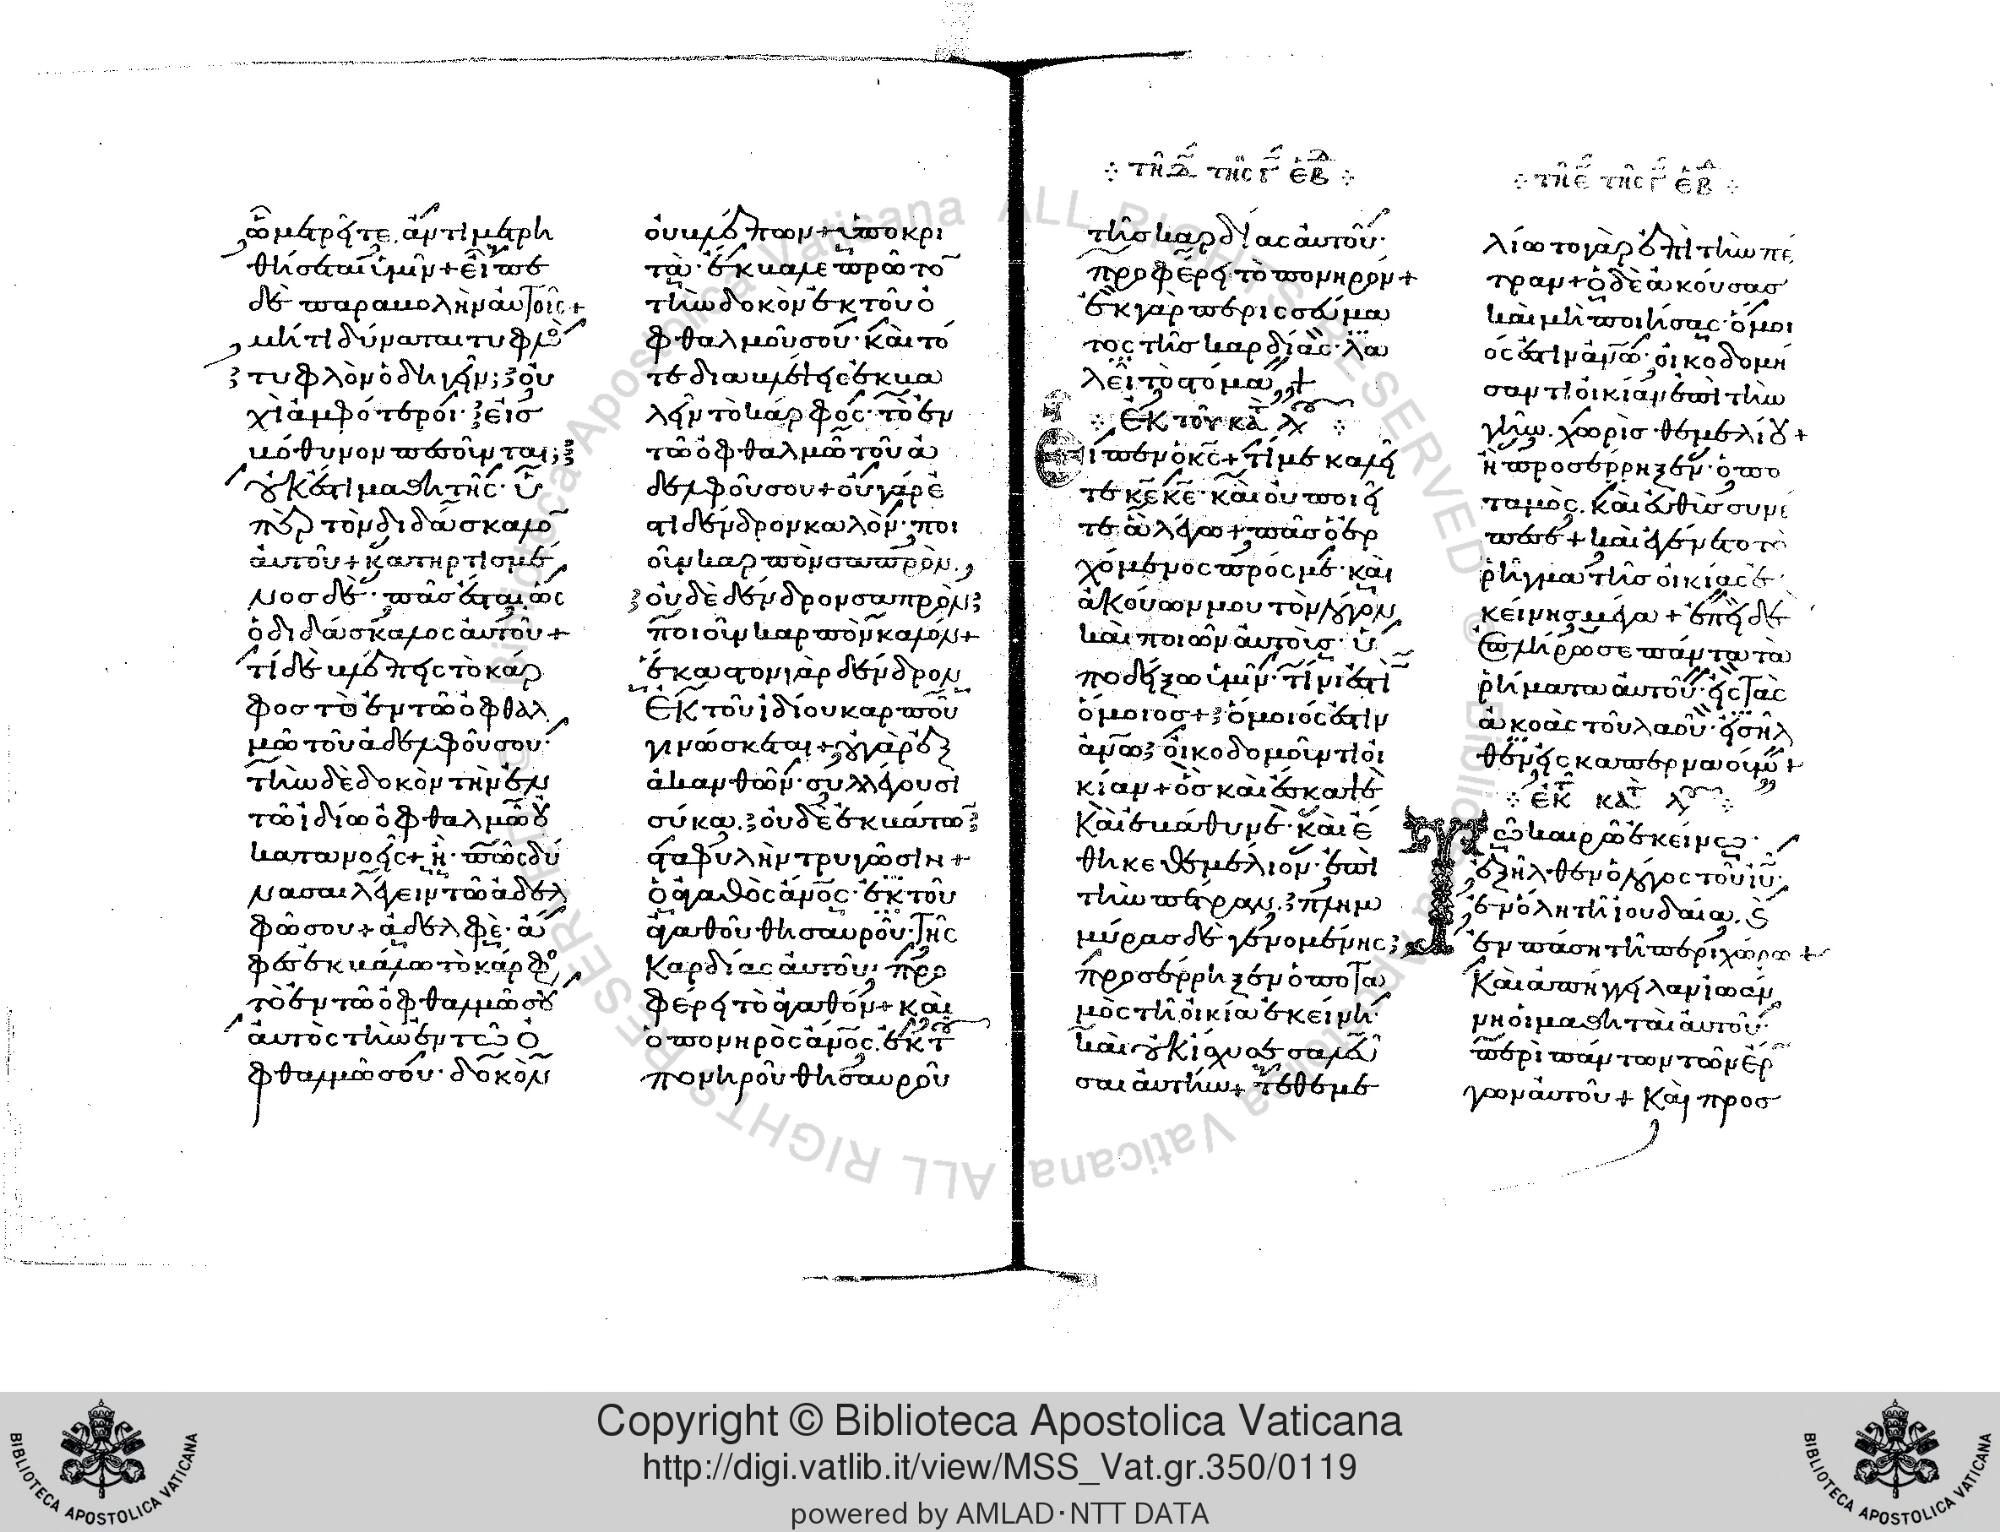 ὧ μετρεῖτε, ἀντιμετρη
θήσεται ὑμῖν + εἶπε
δὲ παραβολὴν αὐτοῖς +
μήτι δύναται τυφλὸς
τυφλὸν ὁδηγεῖν; οὐ
χὶ ἀμφότεροι· εἰς
βόθυνον πεσοῦνται;
οὐκ ἔστι μαθητὴς· ὑ
πὲρ τὸν διδάσκαλον
αὐτοῦ + κατηρτισμέ
νος δὲ· πᾶς ἔσται, ὡς
ὁ διδάσκαλος αὐτοῦ +
τί δὲ βλέπεις τὸ κάρ
φος τὸ ἐν τῶ ὀφθαλ
μῶ τοῦ ἀδελφοῦ σου·
τὴν δὲ δοκὸν τὴν ἐν
τῶ ἰδίω ὀφθαλμῶ οὐ
κατανοεῖς + ἢ· πῶς δύ
νασαι λέγειν τῶ ἀδελ
φῶ σου + ἀδελφὲ· ἄ
φες ἐκβάλω τὸ κάρφος
τὸ ἐν τῶ ὀφθαλμῶ σου
αὐτὸς τὴν ἐν τῶ ὀ
φθαλμῶ σου· δοκὸν
οὐ βλέπων + ὑποκρι
τὰ· ἔκβαλε πρῶτον
τὴν δοκὸν ἐκ τοῦ ὀ
φθαλμοῦ σου· καὶ τό
τε διαβλέψεις ἐκβα
λεῖν τὸ κάρφος· τὸ ἐν
τῶ ὀφθαλμῶ τοῦ ἀ
δελφοῦ σου + οὐ γάρ ἐ
στι δένδρον καλὸν· ποι
οῦν καρπὸν σαπρὸν.
οὐδὲ δένδρον σαπρὸν
ποιοῦν καρπὸν καλόν +
ἕκαστον γὰρ δένδρον
ἐκ τοῦ ἰδίου καρποῦ
γινώσκεται + οὐ γὰρ ἐξ
ἀκανθῶν· συλλέγουσι
σύκα. οὐδὲ ἐκ βάτου
σταφυλὴν τρυγῶσιν +
ὁ ἀγαθὸς ἄνος· ἐκ τοῦ
ἀγαθοῦ θησαυροῦ· τῆς
καρδίας αὐτοῦ, προ
φέρει τὸ ἀγαθόν + καὶ
ὁ πονηρὸς ἄνος. ἐκ τοῦ
πονηροῦ θησαυροῦ
τῆ δ τῆς γ ἑβδ
τῆς καρδίας αὐτοῦ·
προφέρει τὸ πονηρόν +
ἐκ γὰρ περισσεύμα
τος τῆς καρδίας· λα
λεῖ τὸ στόμα +
ἐκ τοῦ κατὰ λου
Εἶπεν ὁ κς + τί με καλεῖ
τε κε κε· καὶ οὐ ποιεῖ
τε ἃ λέγω + πᾶς ὁ ἐρ
χόμενος πρός με· καὶ
ἀκούων μου τὸν λόγον
καὶ ποιῶν αὐτοὺς· ὑ
ποδείξω ὑμῖν· τίνι ἐστὶν
ὅμοιος + ὅμοιός ἐστιν
ἀνω οἰκοδομοῦντι οἰ
κίαν + ὃς καὶ ἔσκαψε
καὶ ἐβάθυνε· καὶ ἔ
θηκε θεμέλιον· ἐπὶ
τὴν πέτραν. πλημ
μύρας δὲ γενομένης
προσέρρηξεν ὁ ποτα
μὸς τῆ οἰκία ἐκείνη·
καὶ οὐκ ἴσχυσε σαλεῦ
σαι αὐτήν + τεθεμε
τῆ ε τῆς γ ἑβδ
λίωτο γὰρ ἐπὶ τὴν πέ
τραν + ὁ δὲ ἀκούσας
καὶ μὴ ποιήσας· ὅμοι
ός ἐστιν ἀνω· οἰκοδομή
σαντι οἰκίαν ἐπὶ τὴν
γῆν. χωρὶς θεμελίου +
ἧ προσέρρηξεν· ὁ πο
ταμὸς. καὶ εὐθὺς συνέ
πεσε + καὶ ἐγένετο τὸ
ῥῆγμα τῆς οἰκίας ἐ
κείνης μέγα + ἐπεὶ δὲ
ἐπλήρωσε πάντα τὰ
ῥήματα αὐτοῦ· εἰς τὰς
ἀκοὰς τοῦ λαοῦ· εἰσῆλ
θεν εἰς καπερναούμ +
ἐκ κατ λου
Τῶ καιρῶ ἐκείνω·
ἐξῆλθεν ὁ λόγος τοῦ ιυ·
ἐν ὅλη τῆ ἰουδαία, καὶ
ἐν πάση τῆ περιχώρω +
καὶ ἀπήγγειλαν ἰωάν
νη οἱ μαθηταὶ αὐτοῦ·
περὶ πάντων τῶν ἔρ
γων αὐτοῦ + καὶ προσ
Copyright © Biblioteca Apostolica Vaticana
http://digi.vatlib.it/view/MSS_Vat.gr.350/0119
powered by AMLAD·NTT DATA
BIBLIOTECA APOSTOLICA VATICANA
BIBLIOTECA APOSTOLICA VATICANA